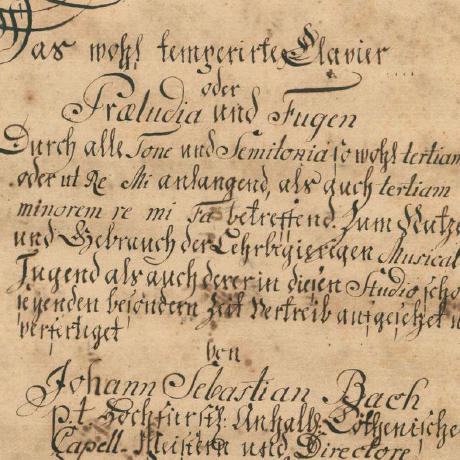 Das wohl temperirte Clavier
oder
Præludia und Fugen
Durch alle Tone und Semitonia so wohl tertiam
oder ut Re Mi anlangend, als auch tertiam
minorem re mi Fa betreffend. Zum Nutzen
und Gebrauch der Lehrbegierigen Musical
Jugend als auch derer in diesen Studio scho
seyenden besondern Zeit Vertreib aufgesetzet u
verfertiget
von
Johann Sebastian Bach
p.t. Hochfürstl: Anhalt. Cöthenische
Capell-Meistern und Directore